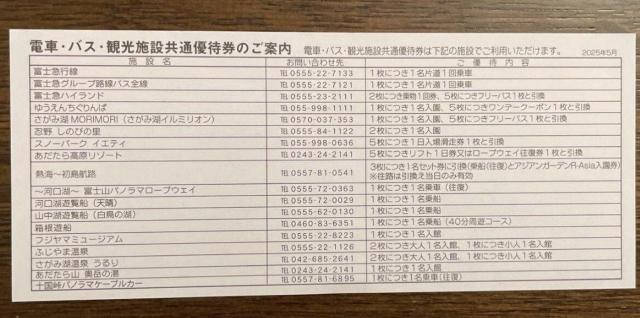 電車・バス・観光施設共通優待券のご案内 電車・バス・観光施設共通優待券は下記の施設でご利用いただけます。 2025年5月
施設名 お問い合わせ先 ご優待内容
富士急行線 TEL 0555-22-7133 1枚につき1名片道1回乗車
富士急グループ路線バス全線 TEL 0555-22-7121 1枚につき1名片道1回乗車
富士急ハイランド TEL 0555-23-2111 2枚につき乗物1回券、5枚につきフリーパス1枚と引換
ゆうえんちぐりんぱ TEL 055-998-1111 1枚につき1名入園、5枚につきワンデークーポン1枚と引換
さがみ湖MORIMORI(さがみ湖イルミリオン) TEL 0570-037-353 1枚につき1名入園、5枚につきフリーパス1枚と引換
忍野 しのびの里 TEL 0555-84-1122 2枚につき1名入園
スノーパーク イエティ TEL 055-998-0636 5枚につき1日入場滑走券1枚と引換
あだたら高原リゾート TEL 0243-24-2141 5枚につきリフト1日券又はロープウェイ往復券1枚と引換
熱海〜初島航路 TEL 0557-81-0541 3枚につき1名セット券に引換(乗船(往復)とアジアンガーデンR-Asia入園券)
※往路は引換え当日のみ有効
〜河口湖〜 富士山パノラマロープウェイ TEL 0555-72-0363 1枚につき1名乗車(往復)
河口湖遊覧船(天晴) TEL 0555-72-0029 1枚につき1名乗船
山中湖遊覧船(白鳥の湖) TEL 0555-62-0130 1枚につき1名乗船
箱根遊船 TEL 0460-83-6351 1枚につき1名乗船(40分周遊コース)
フジヤマミュージアム TEL 0555-22-8223 1枚につき1名入館
ふじやま温泉 TEL 0555-22-1126 2枚につき大人1名入館、1枚につき小人1名入館
さがみ湖温泉 うるり TEL 042-685-2641 2枚につき大人1名入館、1枚につき小人1名入館
あだたら山 奥岳の湯 TEL 0243-24-2141 1枚につき1名入館
十国峠パノラマケーブルカー TEL 0557-81-6895 1枚につき1名乗車(往復)